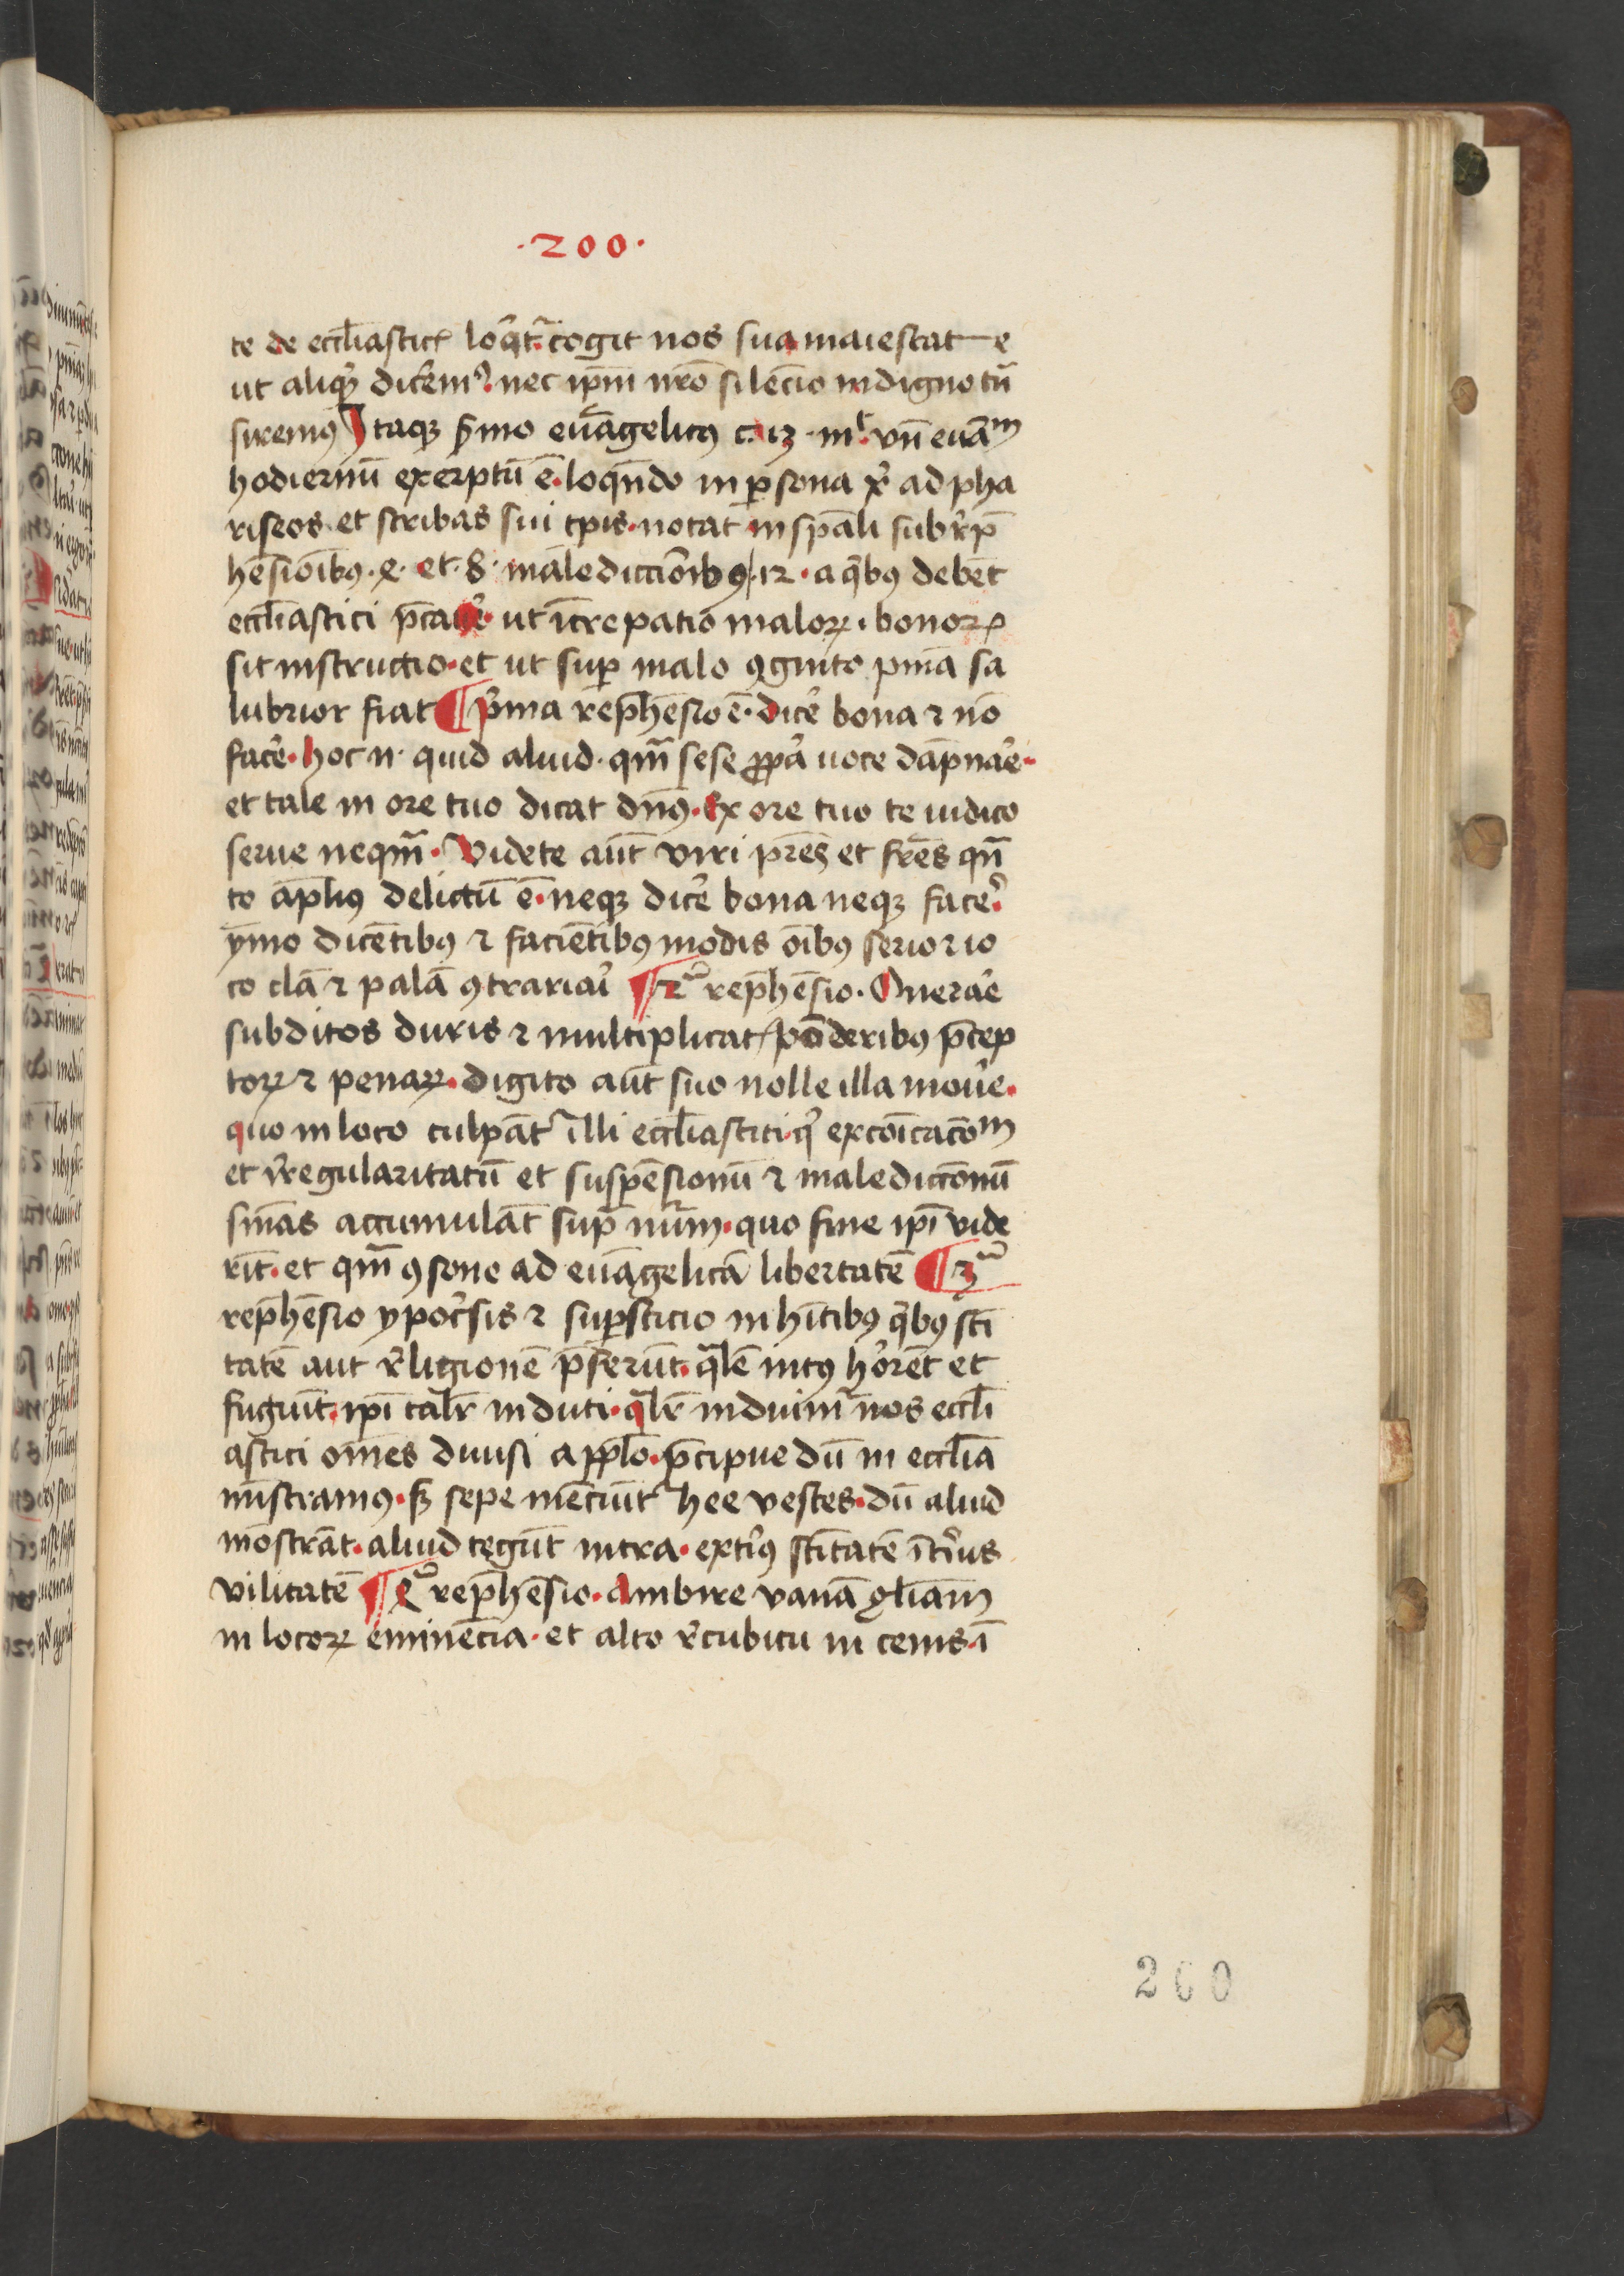 ·200·
te de eccl̄iasticꝭ loq̄t᷑ cogit nos sua maiestate
ut aliqͥd dicem⁹. nec ip̄m nr̄o silēcio indigno tū
sicemꝰ Itaqꝫ p̄mo ev̄āgelicꝰ c. 13 · mͭ vn̄ evāᵐ
hodiernū excerptū ē · loqn̄do in ꝑsona xͥ ad pha
riseos et scribas sui tp̄is · notat in sp̄ali sub rͤp̄
hēsioībꝰ · ꝭ · et · 8 · maledicciōībꝰ · 12 · a qͥbꝰ debēt
eccl̄iastici p̄cavͤe · ut īcrepatio maloꝝ · bonoꝝ
sit instructio · et ut suꝑ malo ꝯgnito pn̄īa sa
lubrior fiat ¶ pͥma rep̄hēsio ē · dicͤe bona ⁊ nō
facͤe · hoc n̄ · quid aliud · qm̄ sese ꝓpͥa voce dāpnaͤe ·
et tale in ore tuo dicat dn̄s · Ex ore tuo te iudico
serve neqm̄ · Videte aūt viri pr̄es et fr̄es qn̄
to āpliꝰ delictū ē · neqꝫ dicͤe bona neqꝫ facͤe ·
ymo dicētibꝰ ⁊ faciētibꝰ modis oībꝰ serio ⁊ io
co clā ⁊ palā ꝯtrariaͥ ¶ 2ᵃ rep̄hēsio · Oneraͤe
subditos duris ⁊ multiplicatꝭ pōderibꝰ p̄cep
toꝝ ⁊ penaꝝ · digito aūt suo nolle illa movͤe ·
quo in loco culpāt᷑ illi eccl̄iastici · qͥ excōicacōᵐ
et yͬregularitatū et suspēsionū ⁊ maledictōnū
sn̄ias accumulāt supͣ nūm · quo fine ip̄i vide
rīt · et qm̄ ꝯsone ad evāgelicā libertatē ¶ 3ᵃ
rep̄hēsio ypocͥsis ⁊ suꝑsticio in hītibꝰ qͥbꝰ scī
tatē aut rͤligionē p̄ferūt · qͣlē intꝰ hͦrent et
fugiūt · ip̄i talr̄ induti · qͣlr̄ induim᷑ nos eccl̄i
astici om̄es diuisi a pplo · p̄cipue dū in eccl̄ia
mīstramꝰ · sꝫ sepe mēciūt᷑ hee vestes · dū aliud
mōstrāt · aliud tegūt intra · extͥꝰ scītatē ītͥus
vilitatē ¶ 4ᵃ rep̄hēsio · Ambire vanā gl̄iam
in locoꝝ eminēcia · et alto rͤcubitu in cenis · ī
200